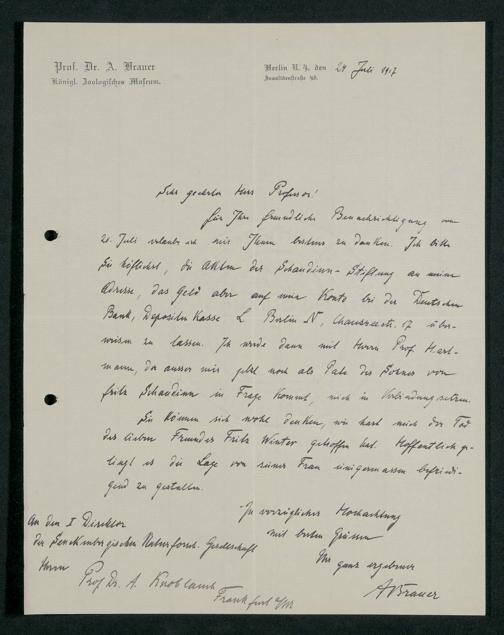 Prof. Dr. A. Brauer
Königl. Zoologisches Museum.
Berlin N. 4, den 24 Juli 1917
Invalidenstraße 43.
Sehr geehrter Herr Professor!
Für Ihre freundliche Benachrichtigung vom
20. Juli erlaube ich mir Ihnen bestens zu danken. Ich bitte
Sie höflichst, die Akten der Schaudinn-Stiftung an meine
Adresse, das Geld aber auf mein Konto bei der Deutschen
Bank, Depositen Kasse L Berlin N, Chausseestr. über-
weisen zu lassen. Ich werde dann mit Herrn Prof. Hart-
mann, der ausser mir jetzt noch als Pate des Sohnes von
Fritz Schaudinn in Frage kommt, mich in Verbindung setzen.
Sie können sich wohl denken, wie hart mich der Tod
des lieben Freundes Fritz Winter getroffen hat. Hoffentlich ge-
lingt es die Lage von seiner Frau einigermassen befriedi-
gend zu gestalten.
In vorzüglicher Hochachtung
mit besten Grüssen
Ihr ganz ergebener
ABrauer
An den I Direktor
der Senckenbergischen Naturforsch. Gesellschaft
Herrn
Prof. Dr. A. Knoblauch
Frankfurt a/M